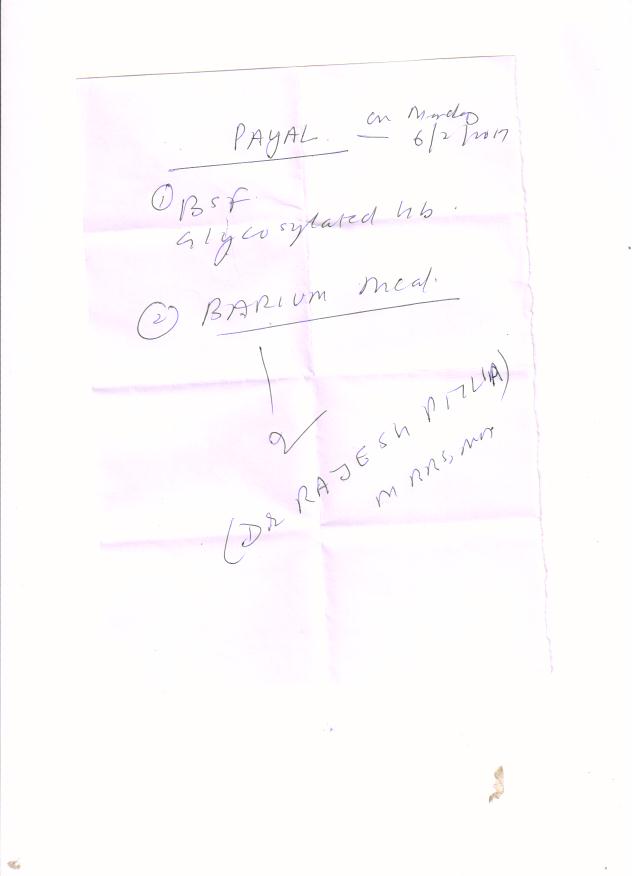 PAYAL. on Monday
6/2/2017
① BSF.
Glycosylated Hb.
② BARIUM meal.
(Dr RAJESH PITLIA)
MBBS,